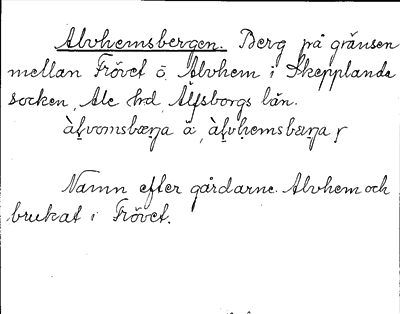 Alvhemsbergen. Berg på gränsen
mellan Frövet o. Alvhem i Skepplanda
socken, Ale hrd, Älfsborgs län.
àlvomsbæŋa a, àlvhemsbæŋa r
Namn efter gårdarne Alvhem och
brukat i Frövet.